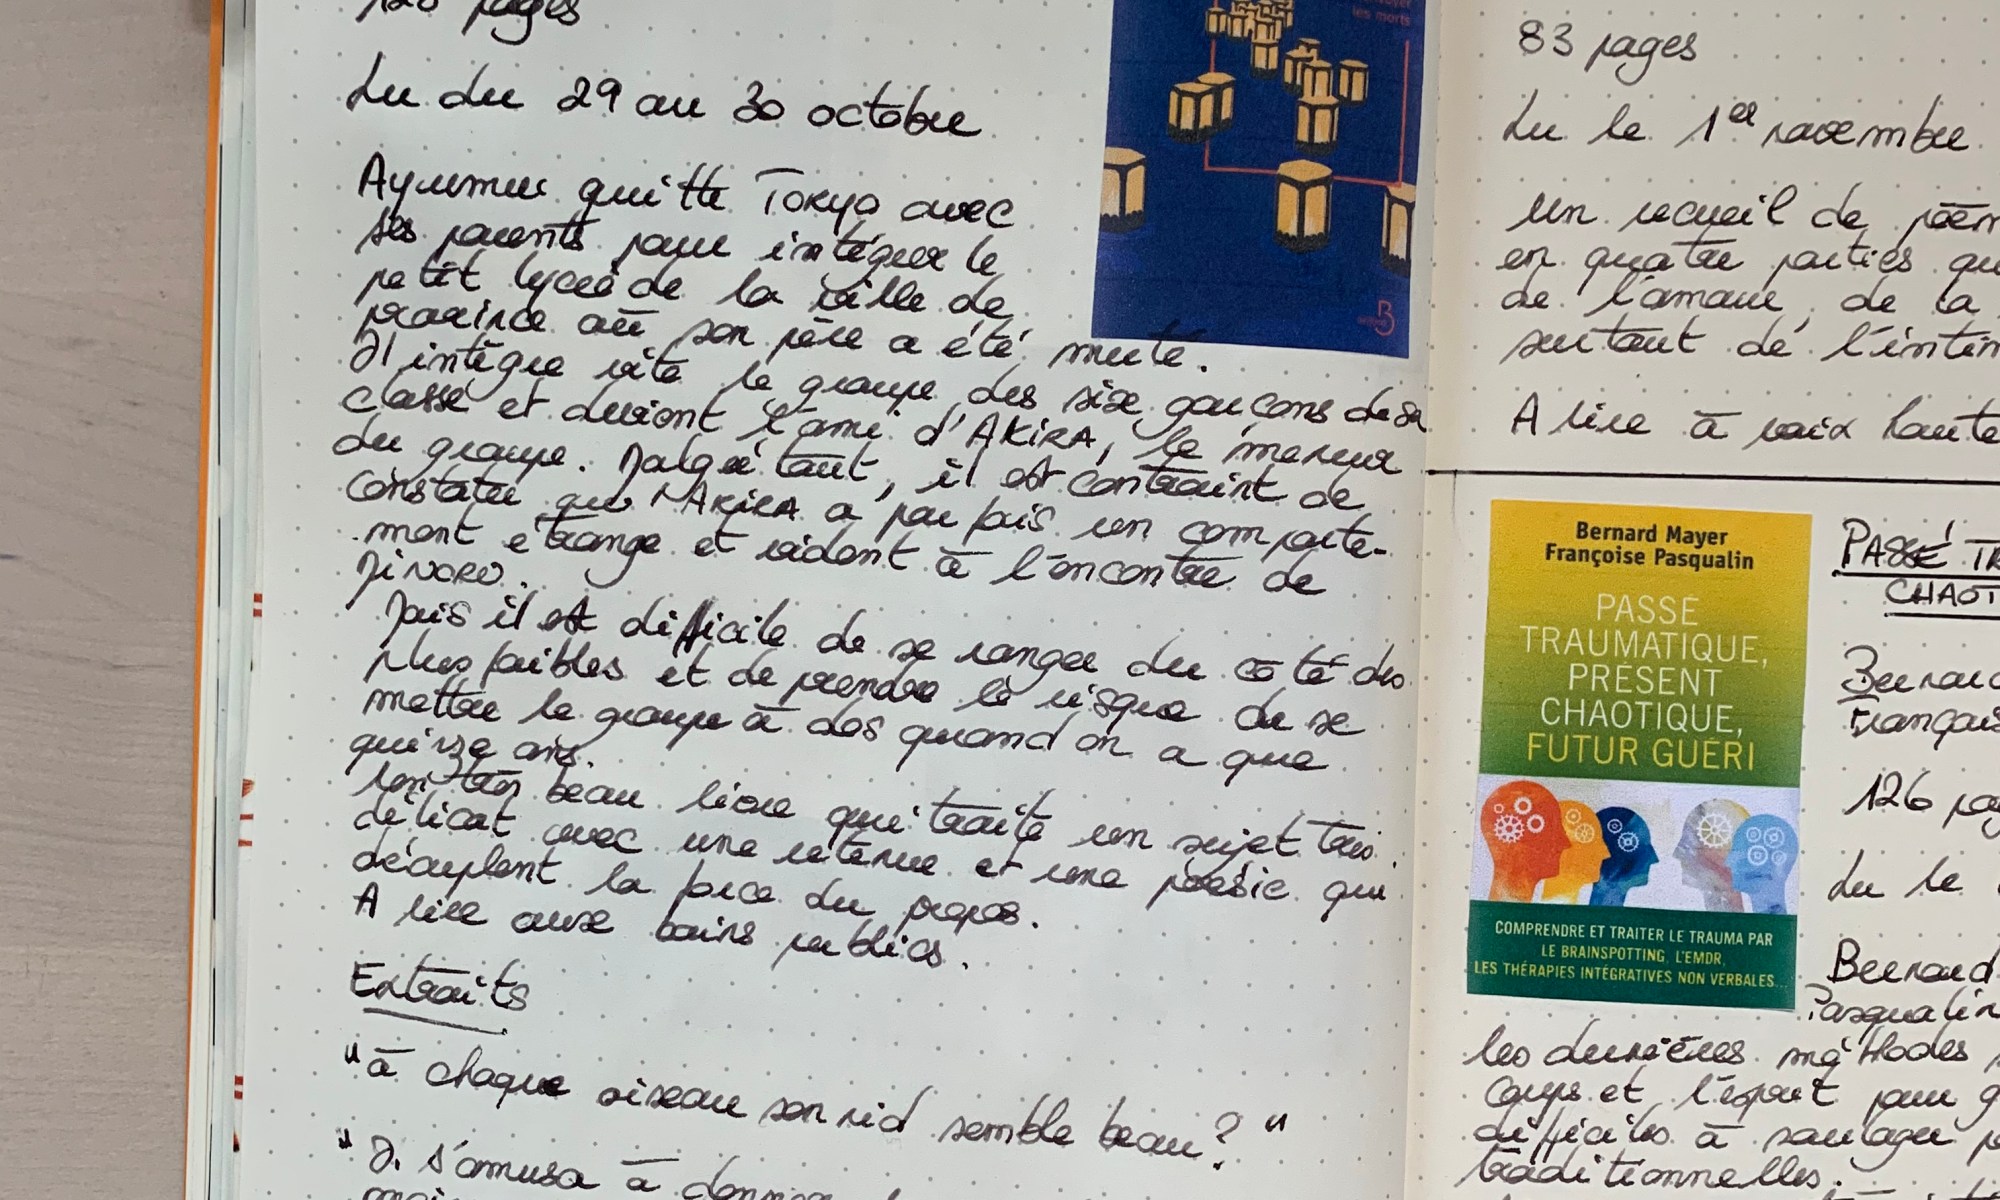 128 pages
Lu du 29 au 30 octobre
Ayumu quitte Tokyo avec
ses parents pour intégrer le
petit lycée de la ville de
province où son père a été muté.
Il intègre vite le groupe des six garçons de sa
classe et devient l'ami d'AKIRA, le meneur
du groupe. Malgré tout, il est contraint de
constater qu'AKIRA a parfois un comporte-
ment étrange et violent à l'encontre de
MINORU.
Mais il est difficile de se ranger du côté des
plus faibles et de prendre le risque de se
mettre le groupe à dos quand on a que
quinze ans.
Un très beau livre qui traite un sujet très
délicat avec une retenue et une poésie qui
décuplent la force du propos.
A lire aux bains publics.
Extraits
"à chaque oiseau son nid semble beau?"
"Il s'amusa à donner
les morts
83 pages
Lu le 1er novembre
un recueil de poèm
en quatre parties qu
de l'amour, de la
surtout de l'intim
A lire à voix haute
Bernard Mayer
Françoise Pasqualin
PASSÉ
TRAUMATIQUE,
PRÉSENT
CHAOTIQUE,
FUTUR GUÉRI
COMPRENDRE ET TRAITER LE TRAUMA PAR
LE BRAINSPOTTING, L'EMDR,
LES THÉRAPIES INTÉGRATIVES NON VERBALES...
PASSÉ TR
CHAOT
Bernard
Françoise
126 pag
Lu le
Bernard
Pasqualin
les dernières méthodes
corps et l'esprit pour g
difficiles à soulager p
traditionnelles.